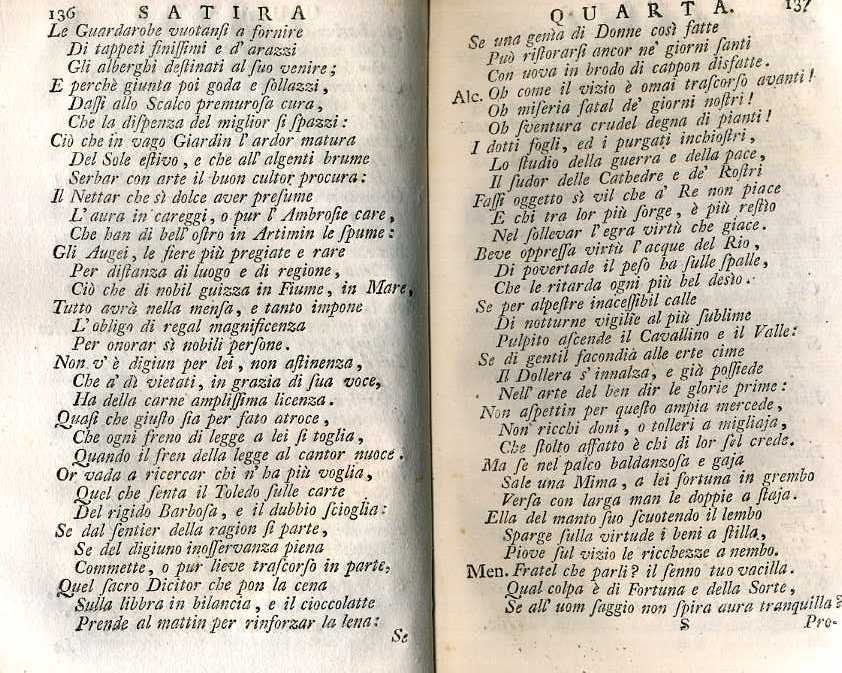 136 SATIRA
Le Guardarobe vuotanſi a fornire
Di tappeti finiſſimi e d' arazzi
Gli alberghi deſtinati al ſuo venire;
E perchè giunta poi goda e ſollazzi,
Daſſi allo Scalco premuroſa cura,
Che la diſpenza del miglior ſi ſpazzi:
Ciò che in vago Giardin l' ardor matura
Del Sole eſtivo, e che all' algenti brume
Serbar con arte il buon cultor procura:
Il Nettar che sì dolce aver preſume
L' aura in careggi, o pur l' Ambroſie care,
Che han di bell' oſtro in Artimin le ſpume:
Gli Augei, le fiere più pregiate e rare
Per diſtanza di luogo e di regione,
Ciò che di nobil guizza in Fiume, in Mare,
Tutto avrà nella menſa, e tanto impone
L' obligo di regal magnificenza
Per onorar sì nobili perſone.
Non v' è digiun per lei, non aſtinenza,
Che a' dì vietati, in grazia di ſua voce,
Ha della carne ampliſſima licenza.
Quaſi che giuſto ſia per fato atroce,
Che ogni freno di legge a lei ſi toglia,
Quando il fren della legge al cantor nuoce.
Or vada a ricercar chi n' ha più voglia,
Quel che ſenta il Toledo ſulle carte
Del rigido Barboſa, e il dubbio ſcioglia:
Se dal ſentier della ragion ſi parte,
Se del digiuno inoſſervanza piena
Commette, o pur lieve traſcorſo in parte,
Quel ſacro Dicitor che pon la cena
Sulla libbra in bilancia, e il cioccolatte
Prende al mattin per rinforzar la lena:
Se
QUARTA. 137
Se una genìa di Donne così fatte
Può riſtorarſi ancor ne' giorni ſanti
Con uova in brodo di cappon disfatte.
Alc. Oh come il vizio è omai traſcorſo avanti!
Oh miſeria fatal de' giorni noſtri!
Oh ſventura crudel degna di pianti!
I dotti fogli, ed i purgati inchioſtri,
Lo ſtudio della guerra e della pace,
Il ſudor delle Cathedre e de' Roſtri
Faſſi oggetto sì vil che a' Re non piace
E chi tra lor più ſorge, è più reſtìo
Nel ſollevar l' egra virtù che giace.
Beve oppreſſa virtù l' acque del Rio,
Di povertade il peſo ha ſulle ſpalle,
Che le ritarda ogni più bel desìo.
Se per alpeſtre inaceſſibil calle
Di notturne vigilie al più ſublime
Pulpito aſcende il Cavallino e il Valle:
Se di gentil facondià alle erte cime
Il Dollera s' innalza, e già poſſiede
Nell' arte del ben dir le glorie prime:
Non aſpettin per queſto ampia mercede,
Non ricchi doni, o tolleri a migliaja,
Che ſtolto affatto è chi di lor ſel crede.
Ma ſe nel palco baldanzoſa e gaja
Sale una Mima, a lei fortuna in grembo
Verſa con larga man le doppie a ſtaja.
Ella del manto ſuo ſcuotendo il lembo
Sparge ſulla virtude i beni a ſtilla,
Piove ſul vizio le ricchezze a nembo.
Men. Fratel che parli? il ſenno tuo vacilla.
Qual colpa è di Fortuna e della Sorte,
Se all' uom ſaggio non ſpira aura tranquilla?
S Pro-